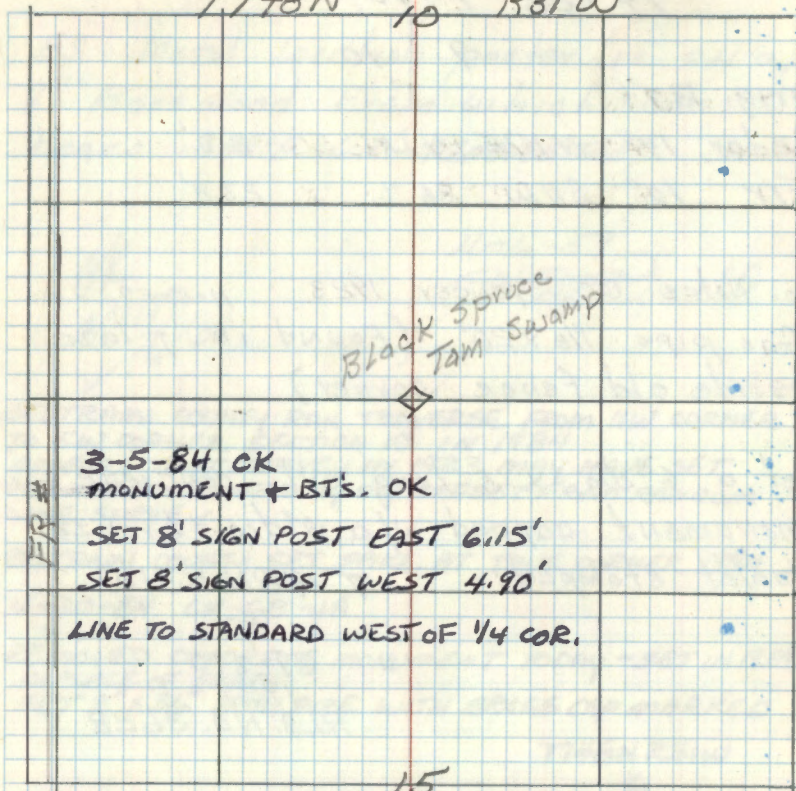 10
Black Spruce
Tam Swamp
3-5-84 CK
MONUMENT + BT'S. OK
SET 8' SIGN POST EAST 6.15'
SET 8' SIGN POST WEST 4.90'
LINE TO STANDARD WEST OF 1/4 COR.
15